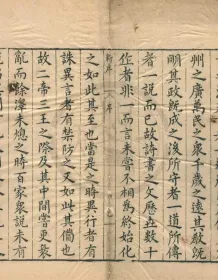 州之廣萬民之衆千歲之遠其敎既
明其政既成之後所守者一道所傳
者一說而已故詩書之文歷世數十
作者非一而言未嘗不相為終始化
新序
之如此其至也當是之時異行者有
誅異言者有禁防之又如此其備也
故二帝三王之際及其中間嘗更衰
亂而餘澤未熄之時百家衆說未有